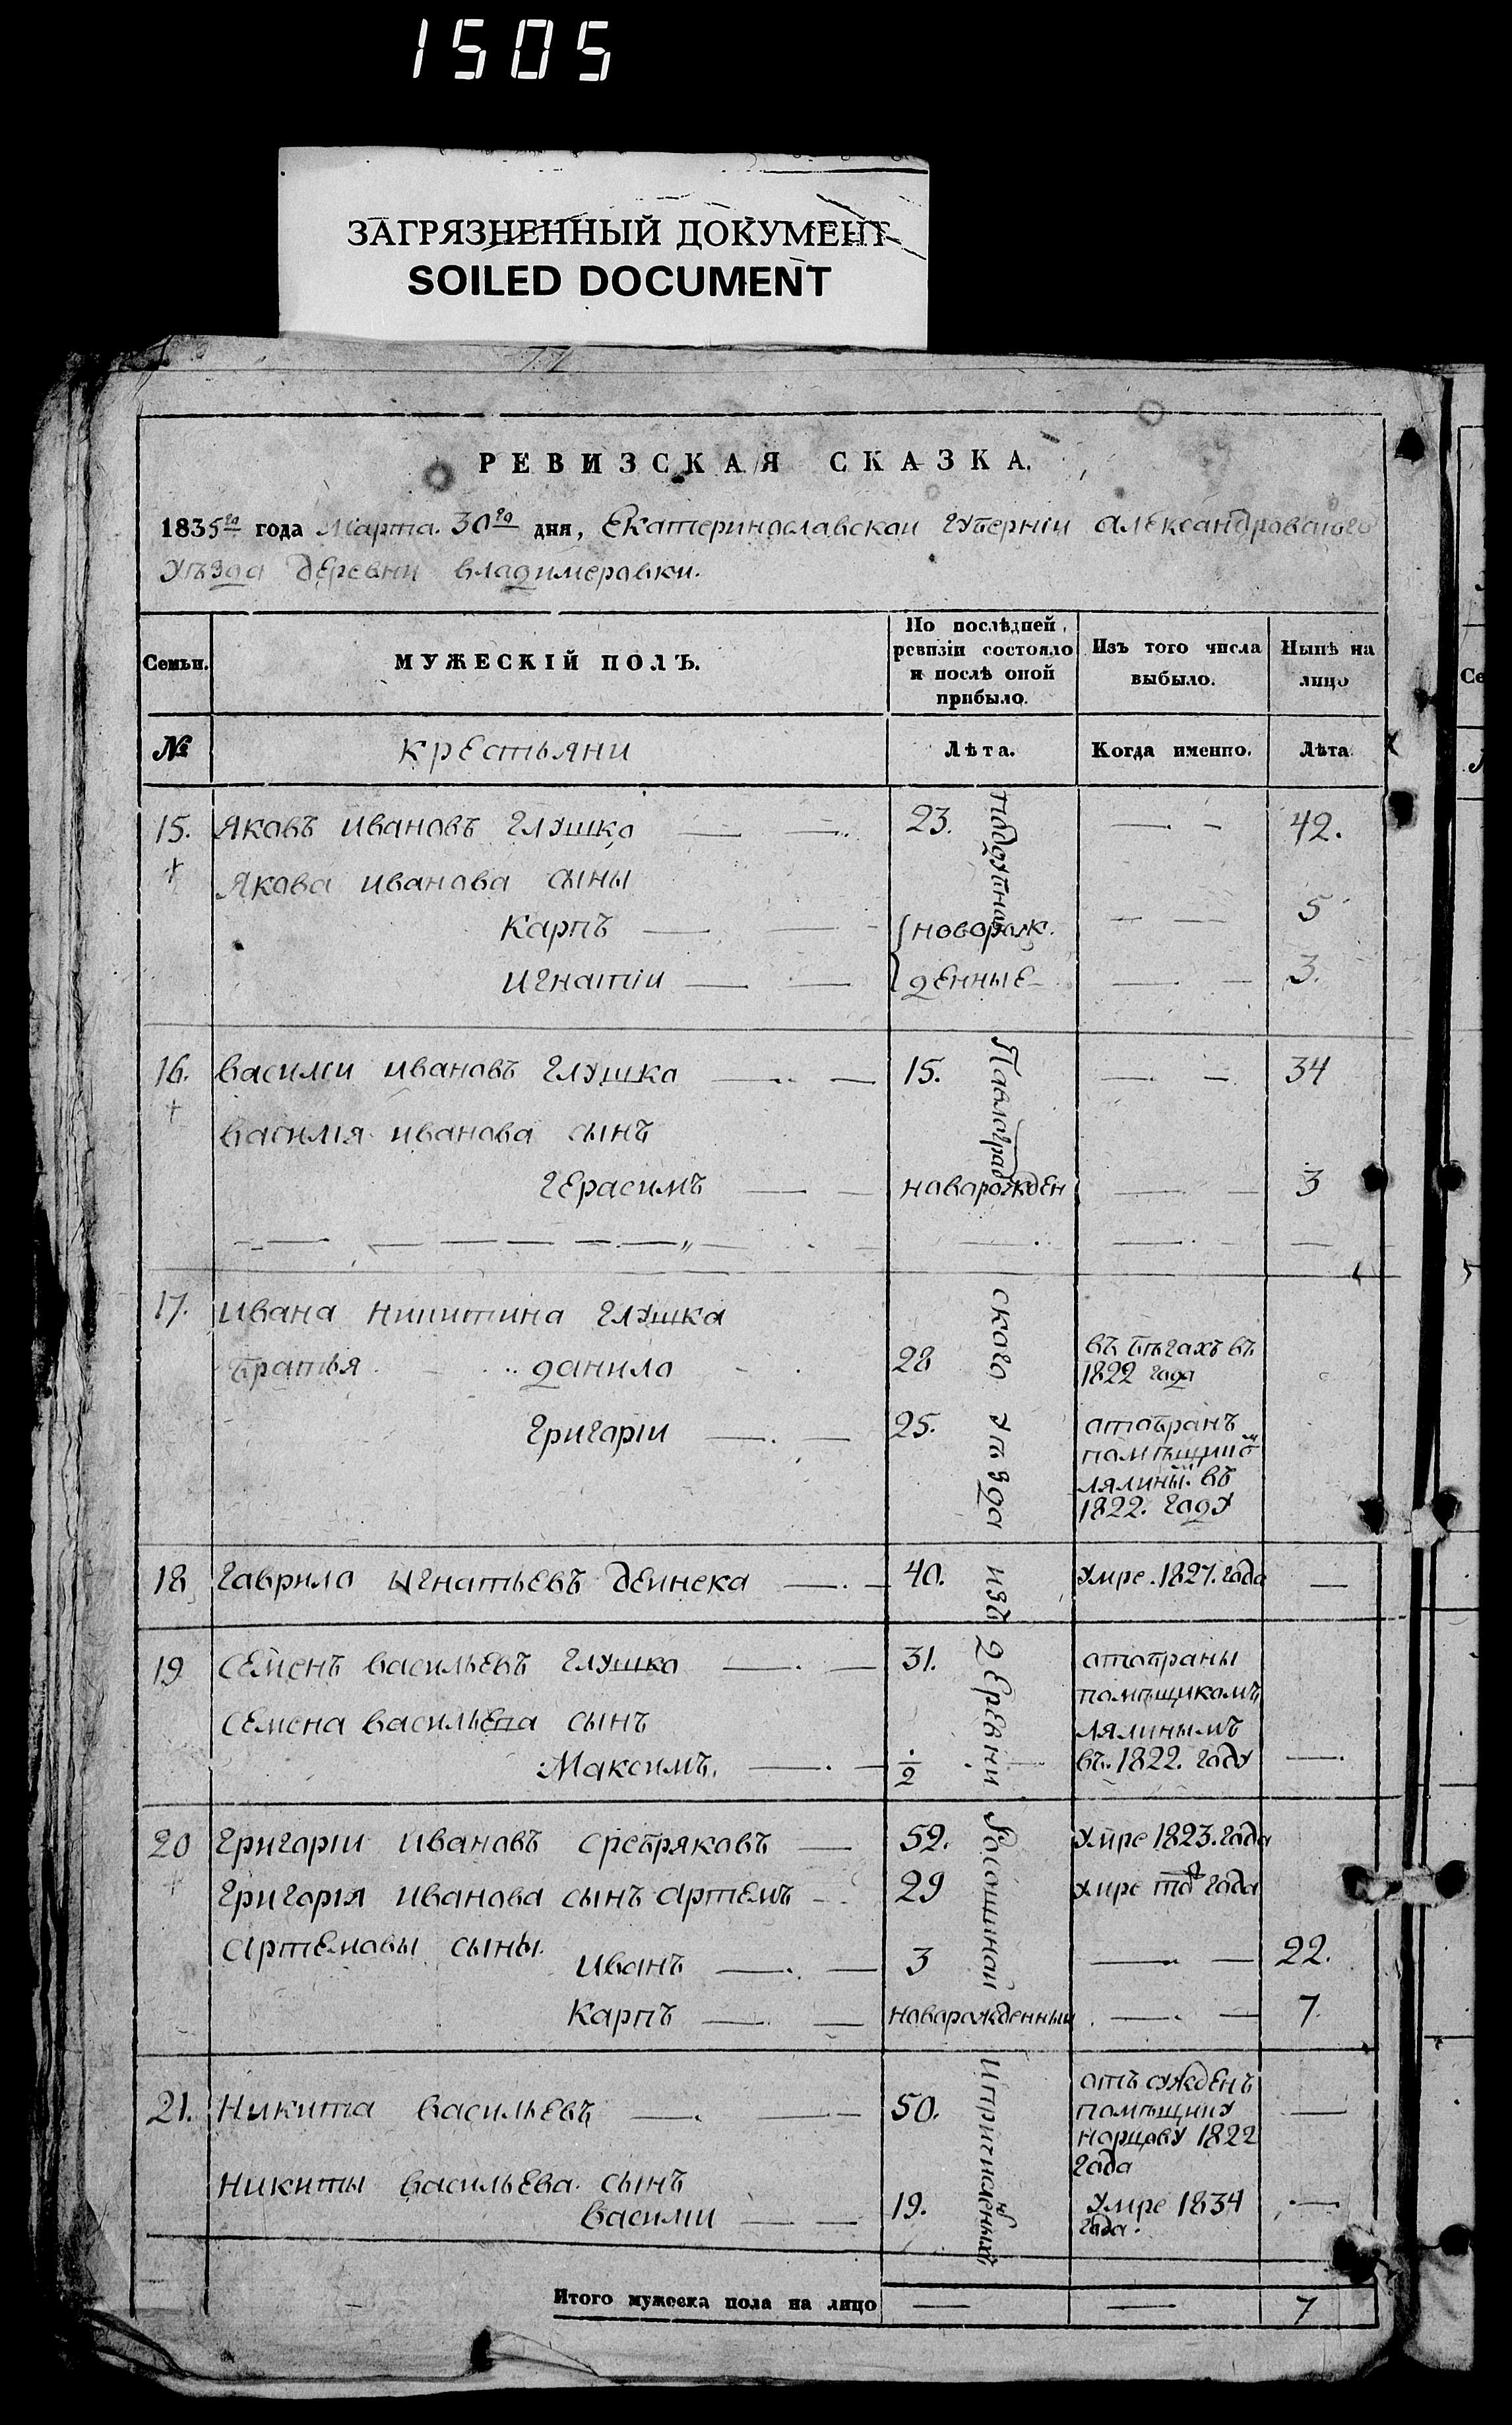 1505
ЗАГРЯЗНЕННЫЙ ДОКУМЕНТ
SOILED DOCUMENT
РЕВИЗСКАЯ СКАЗКА.
1835го года Марта. 30го дня, Екатеринославскои губерніи Александровского
уѣзда деревни владимеровки.
Семьи.
МУЖЕСКІЙ ПОЛЪ.
По послѣдней
ревизіи состояло
и послѣ оной
прибыло.
Изъ того числа
выбыло.
Нынѣ на
лицо
№
крестьяни
Лѣта.
Когда именно.
Лѣта.
15. Яковъ Ивановъ Глушко 23. 42.
Якова Иванова сыны
Карпъ новорож. 5
Игнатіи денные 3.
16. Василіи Ивановъ Глушко 15. 34
Василія Иванова сынъ
Герасимъ новорожден 3
17. Ивана Никитина Глушка
братья Данило 28 въ бѣгахъ въ
1822 года
Григоріи 25. отобранъ
помѣщико
лялины. въ
1822. году
18 Гаврило Игнатьевъ Деинека 40. умре. 1827. года
19 Семенъ Васильевъ Глушко 31. отобраны
помѣщикомъ
Семена Васильева сынъ лялинымъ
Максимъ. 1/2 въ. 1822. году
20 Григоріи Ивановъ Сребряковъ 52. умре 1823. года
Григорія Иванова сынъ Артемъ 29 умре года
Артемовы сыны.
Иванъ 3 22.
Карпъ новорожденныи 7.
21. Никита Васильевъ 50. отъ сужденъ
помѣщику
1822
года
Никиты Васильева сынъ
Василіи 19. умре 1834
года.
Павлоград
ского уѣзда изъ деревни
Итого мужеска пола на лицо 7